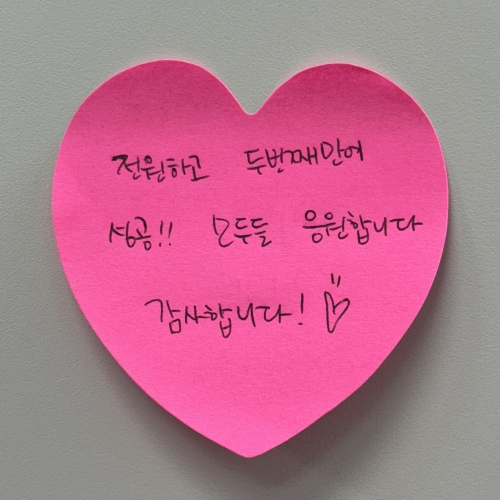 전원하고 두번째만에
성공!! 모두들 응원합니다
감사합니다!